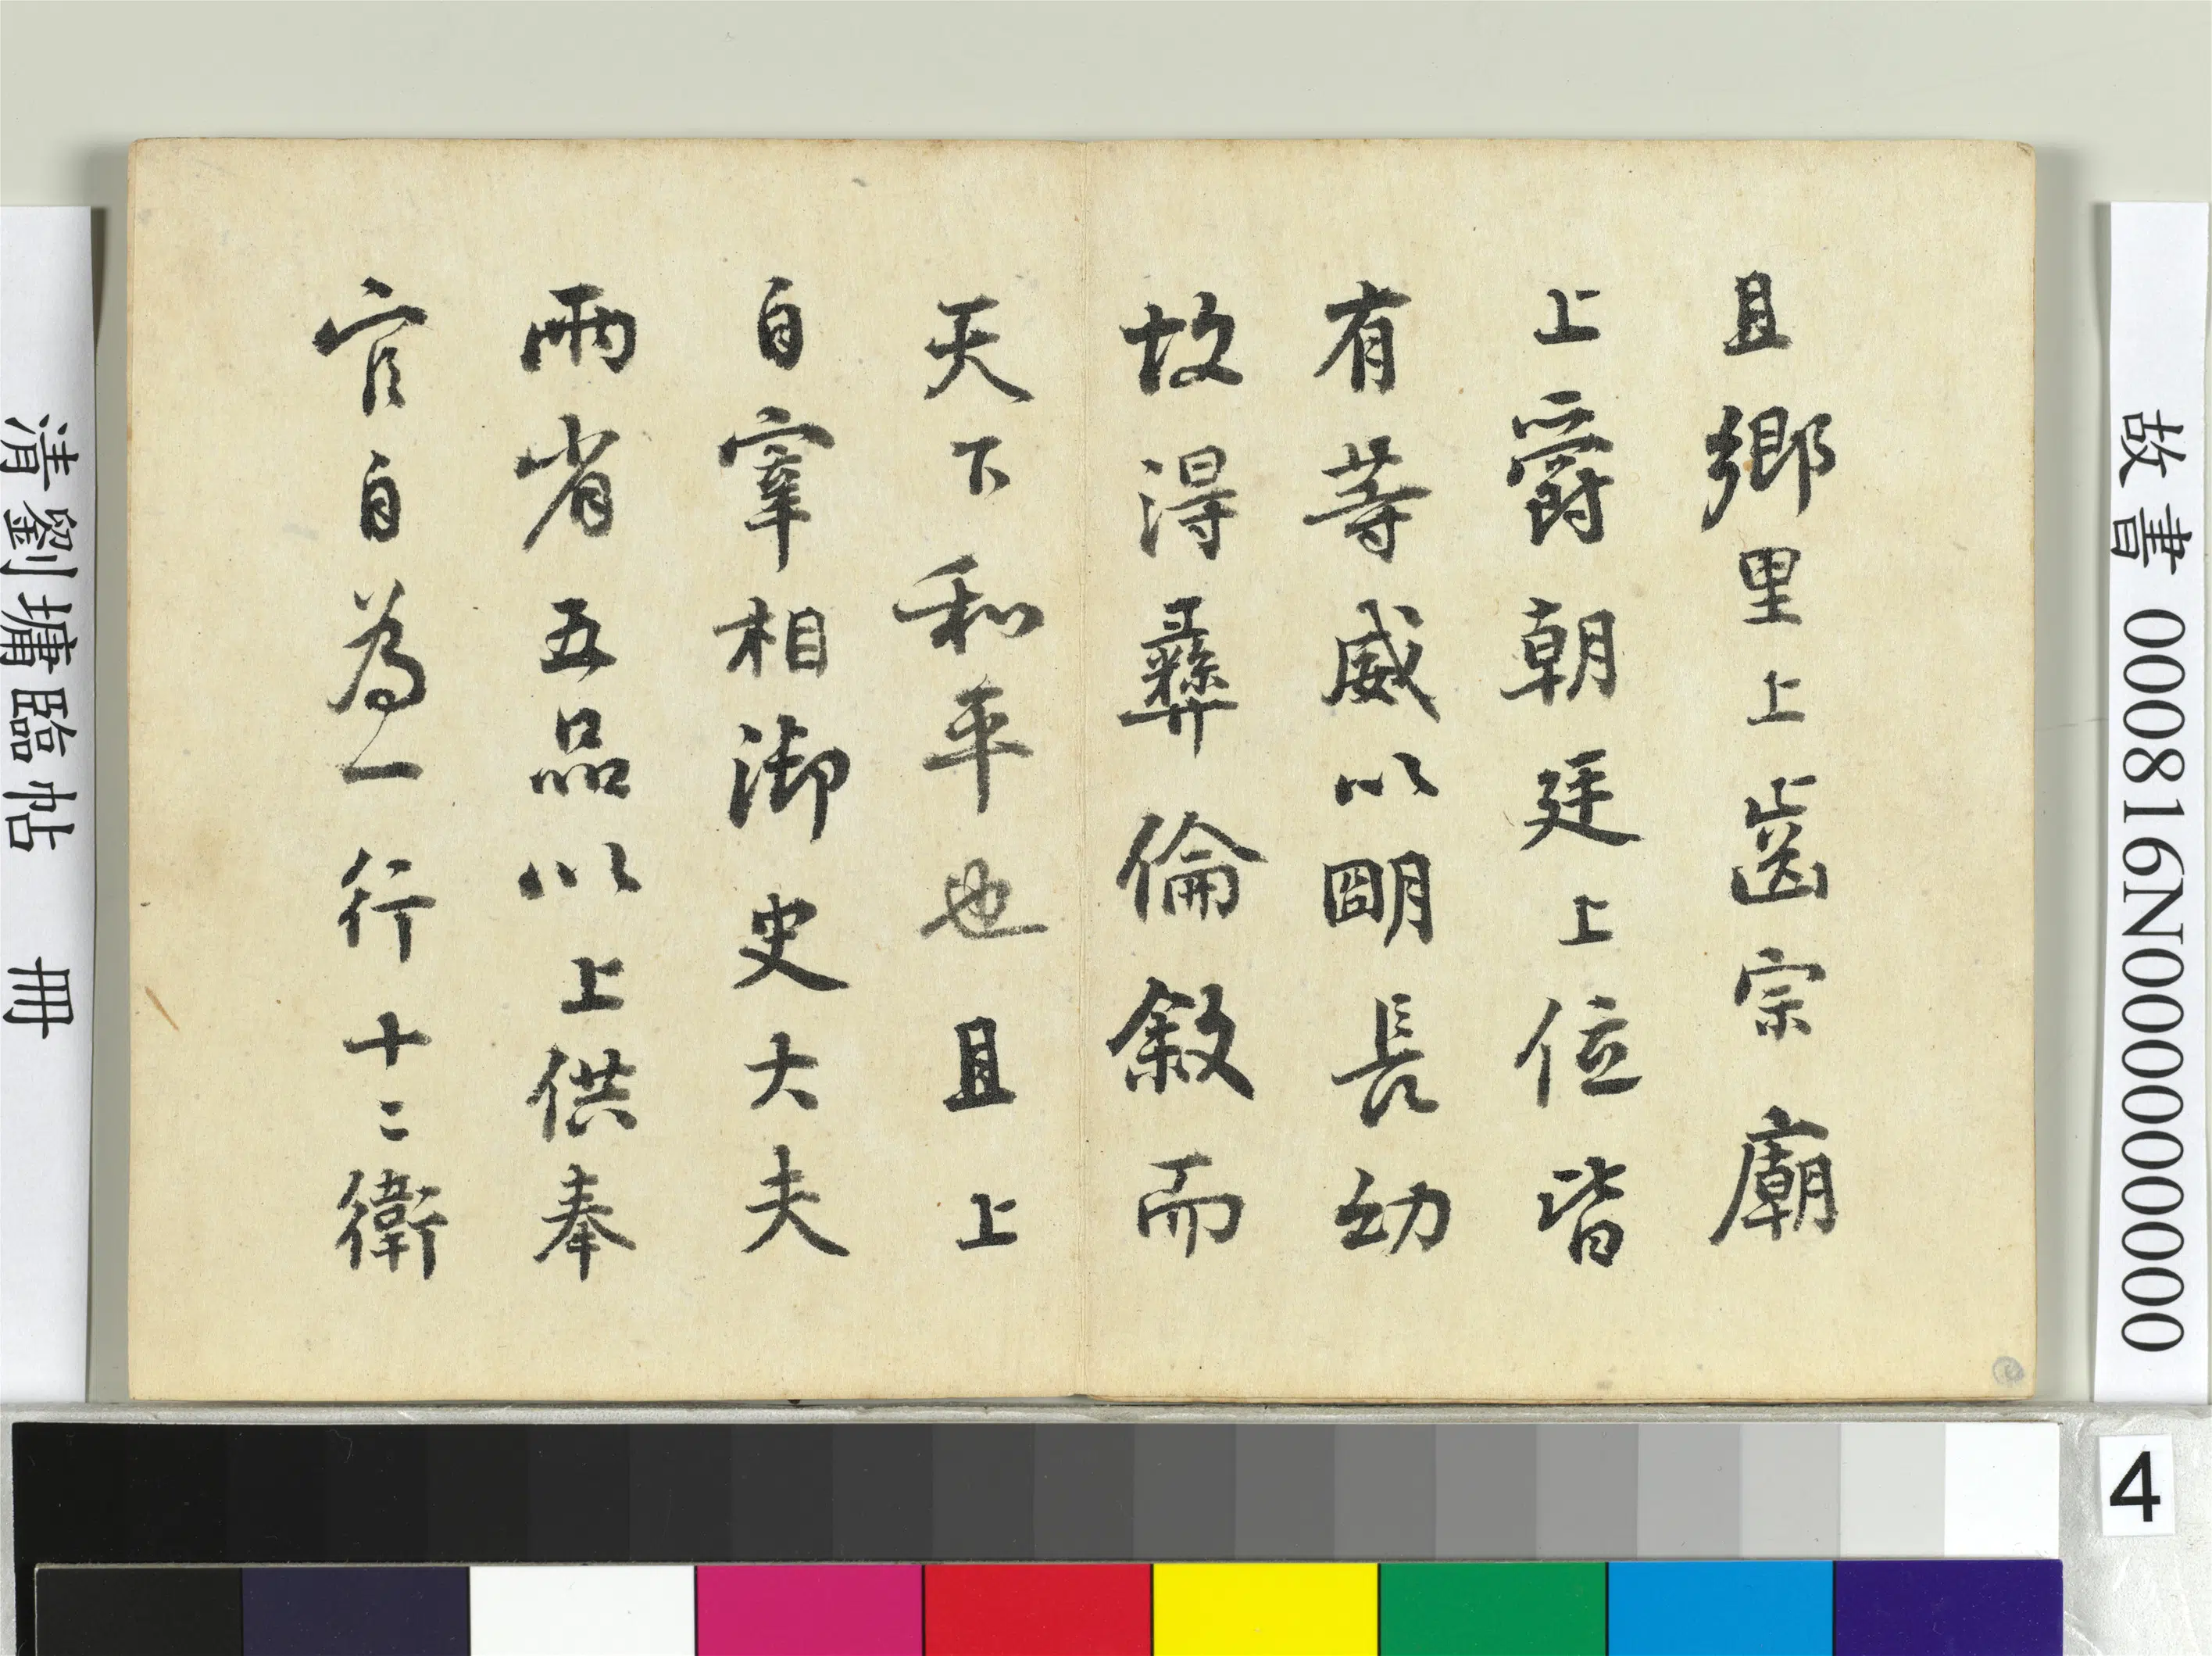 且鄉里上齒宗廟
上爵朝廷上位皆
有等威以明長幼
故得彝倫敘而
天下和平也且上
自宰相御史大夫
兩省五品以上供奉
官自為一行十二衛
故書 000816N000000000
清劉墉臨帖 冊
4